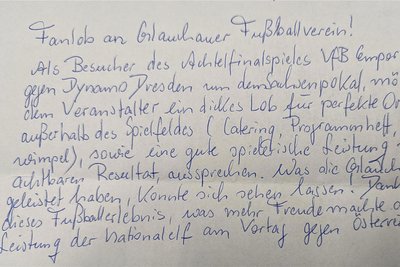 Fanlob an Glauchauer Fußballverein!
Als Besucher des Achtelfinalspieles VfB Empor
gegen Dynamo Dresden um den Sachsenpokal, mö
dem Veranstalter ein dickes Lob für perfekte Or
außerhalb des Spielfeldes (Catering, Programmheft,
wimpel), sowie eine gute spielerische Leistung
achtbaren Resultat, aussprechen. Was die Glauch
geleistet haben, konnte sich sehen lassen. Dank
dieses Fußballerlebnis, was mehr Freude machte
Leistung der Nationalelf am Vortag gegen Österrei